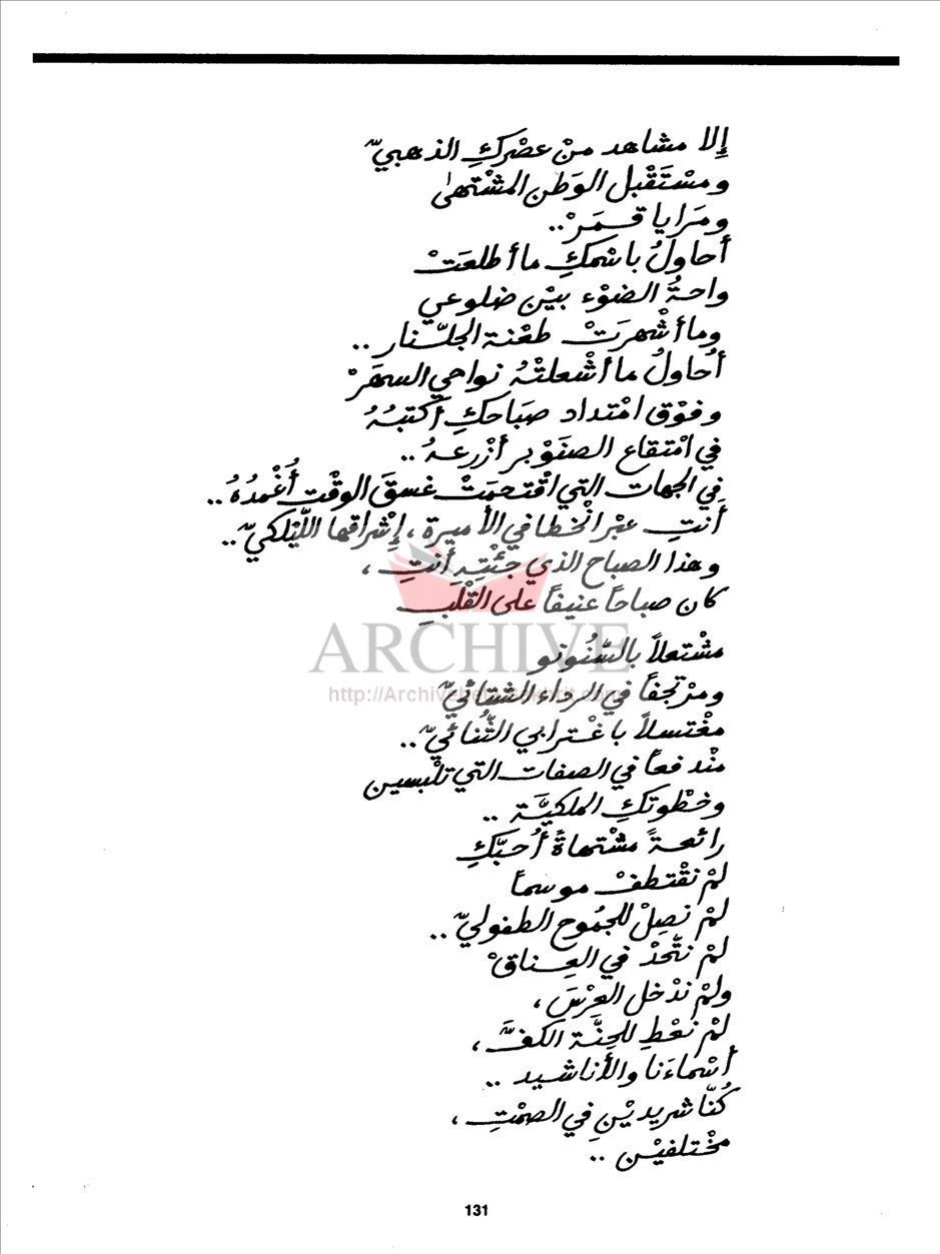 إلا مشاهد منْ عصْركِ الذهبيّ
ومسْتَقْبل الوَطن المشْتهىٰ
ومَرايا قـمَرْ..
أحاولُ باسْمكِ ماأطلعَتْ
واحةُ الضوْء بيْن ضلوعي
وماأشْهرَتْ طعْنة الجلّنار ..
أُحاولُ ماأشْعلتْهُ نواحي السهَرْ
وفوْق امْتداد صبَاحكِ أكتبُهُ
في امْتقاع الصنَوْبر أزْرعهُ ..
في الجهات التي اقْتحمَتْ غسقَ الوقْت أُغْمدُهُ ..
أَنتِ عبْر انْخطافي الأميرة ، إشْراقها اللّيْلكيّ ..
وهذا الصباح الذي جئْتِهِ أنتِ ،
كان صباحاً عنيفاً على القلْبِ
ARCHIVE
مشْتعلاً بالسّنُونو
ومرْتجفاً في الرداء الشتائيّ
مغْتسلاً باغْترابي الثُّنائيّ ..
منْدفعاً في الصفات التي تلْبسين
وخطْوتكِ الملكيَّة ..
رائعةً مشْتهاةً أُحبّكِ
لمْ نقْتطفْ موسماً
لمْ نصِلْ للجمُوح الطفوليّ ..
لمْ نتّحدْ في العِناقْ
ولمْ ندْخل العرْسَ ،
لمْ نعْطِ للجِنَّة الكفَّ ،
أسْماءَنا والأناشيد ..
كُنّا شريديْنِ في الصمْتِ ،
مخْتلفيْن ..
131